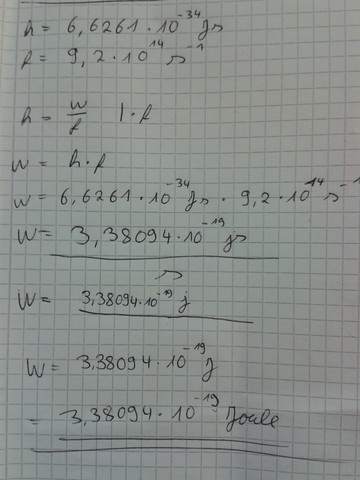 h = 6,6261 · 10⁻³⁴ Js
f = 9,2 · 10¹⁴ s⁻¹
h = W/f | · f
W = h · f
W = 6,6261 · 10⁻³⁴ Js · 9,2 · 10¹⁴ s⁻¹
W = 3,38094 · 10⁻¹⁹ Js
s
W = 3,38094 · 10⁻¹⁹ J
W = 3,38094 · 10⁻¹⁹ J
= 3,38094 · 10⁻¹⁹ Joule